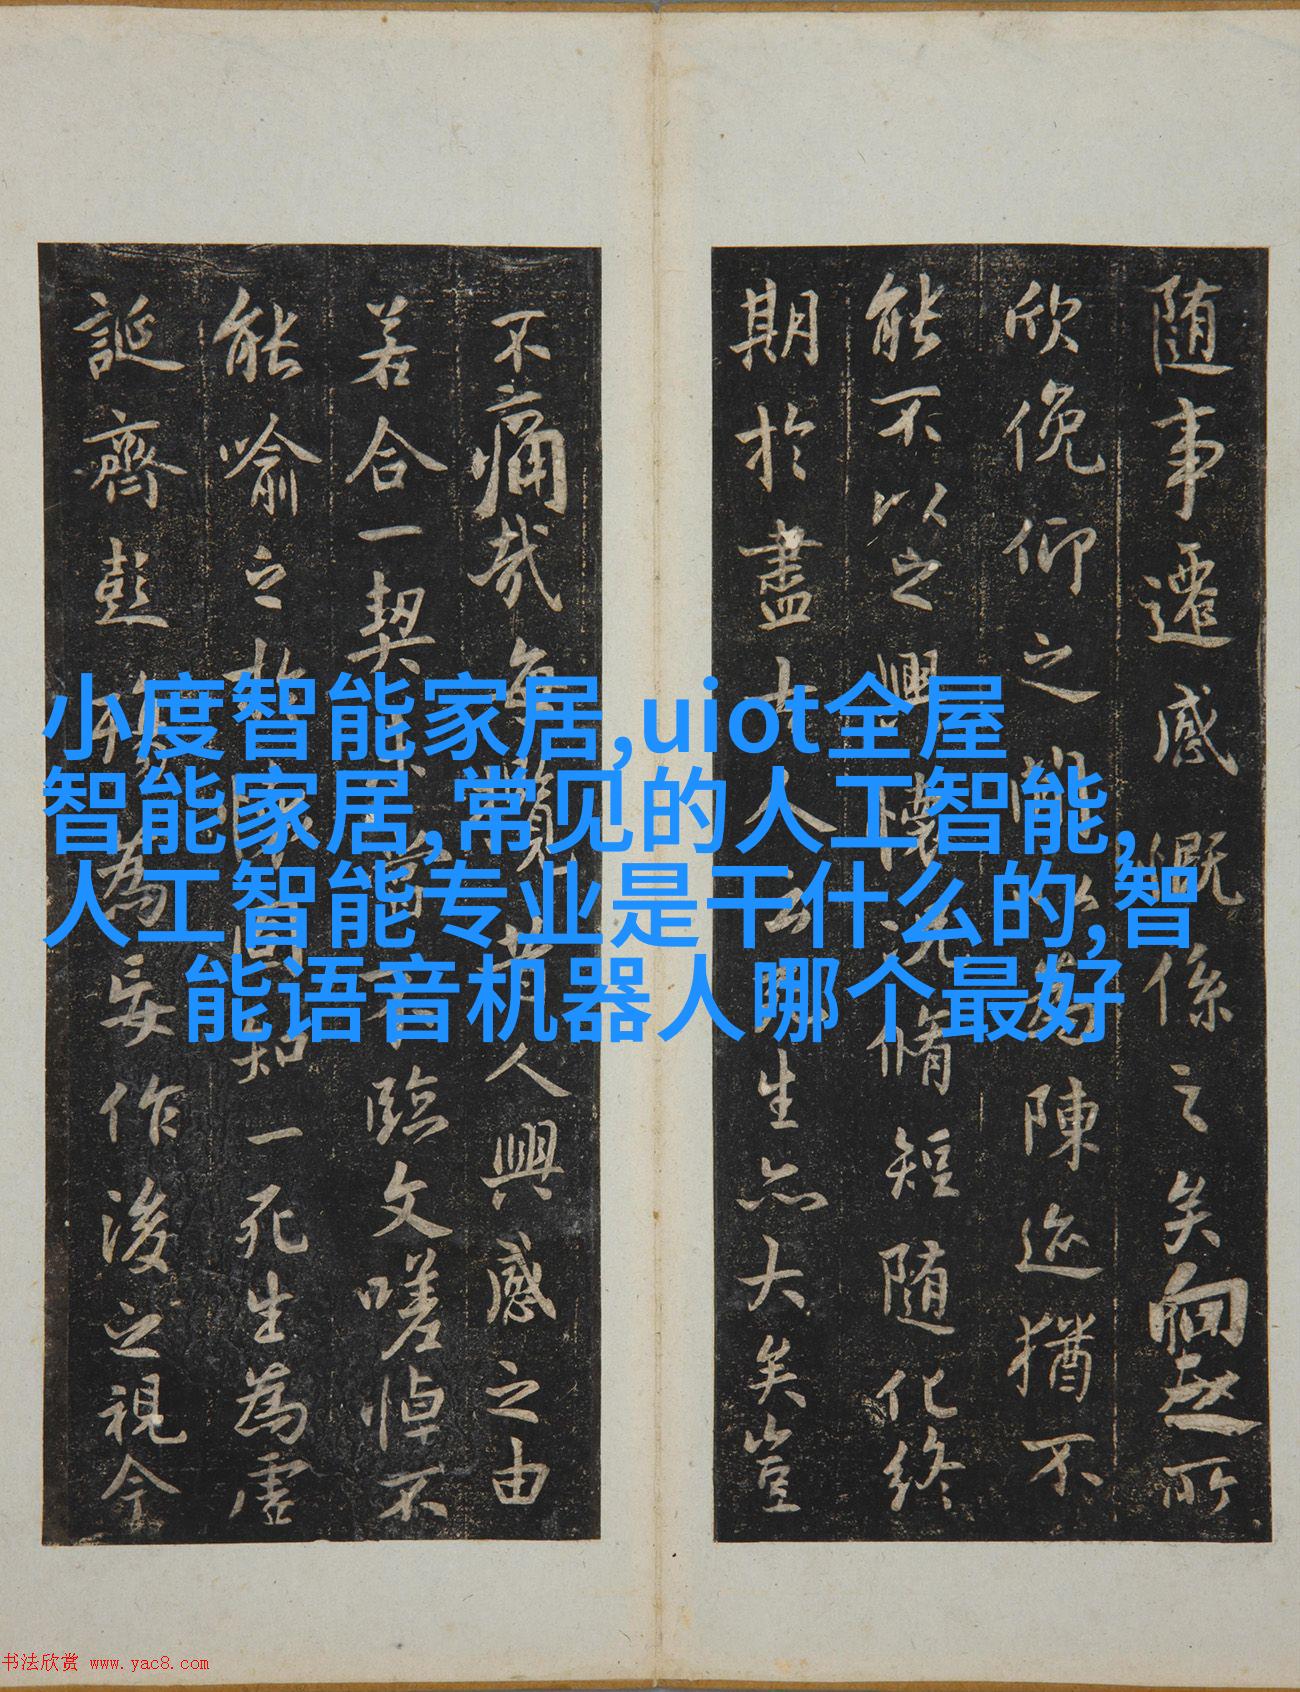 随事遷感慨係之矣向之所
欣俛仰之間以為陳迹猶不
能不以之興懷况脩短随化終
期於盡古人云死生亦大矣豈
不痛哉每攬昔人興感之由
若合一契未嘗不臨文嗟悼不
能喻之於懷固知一死生為虛
誕齊彭殤為妄作後之視今
小度智能家居,uiot全屋
智能家居,常见的人工智能,
人工智能专业是干什么的,智
能语音机器人哪个最好
书法欣赏 www.yac8.com